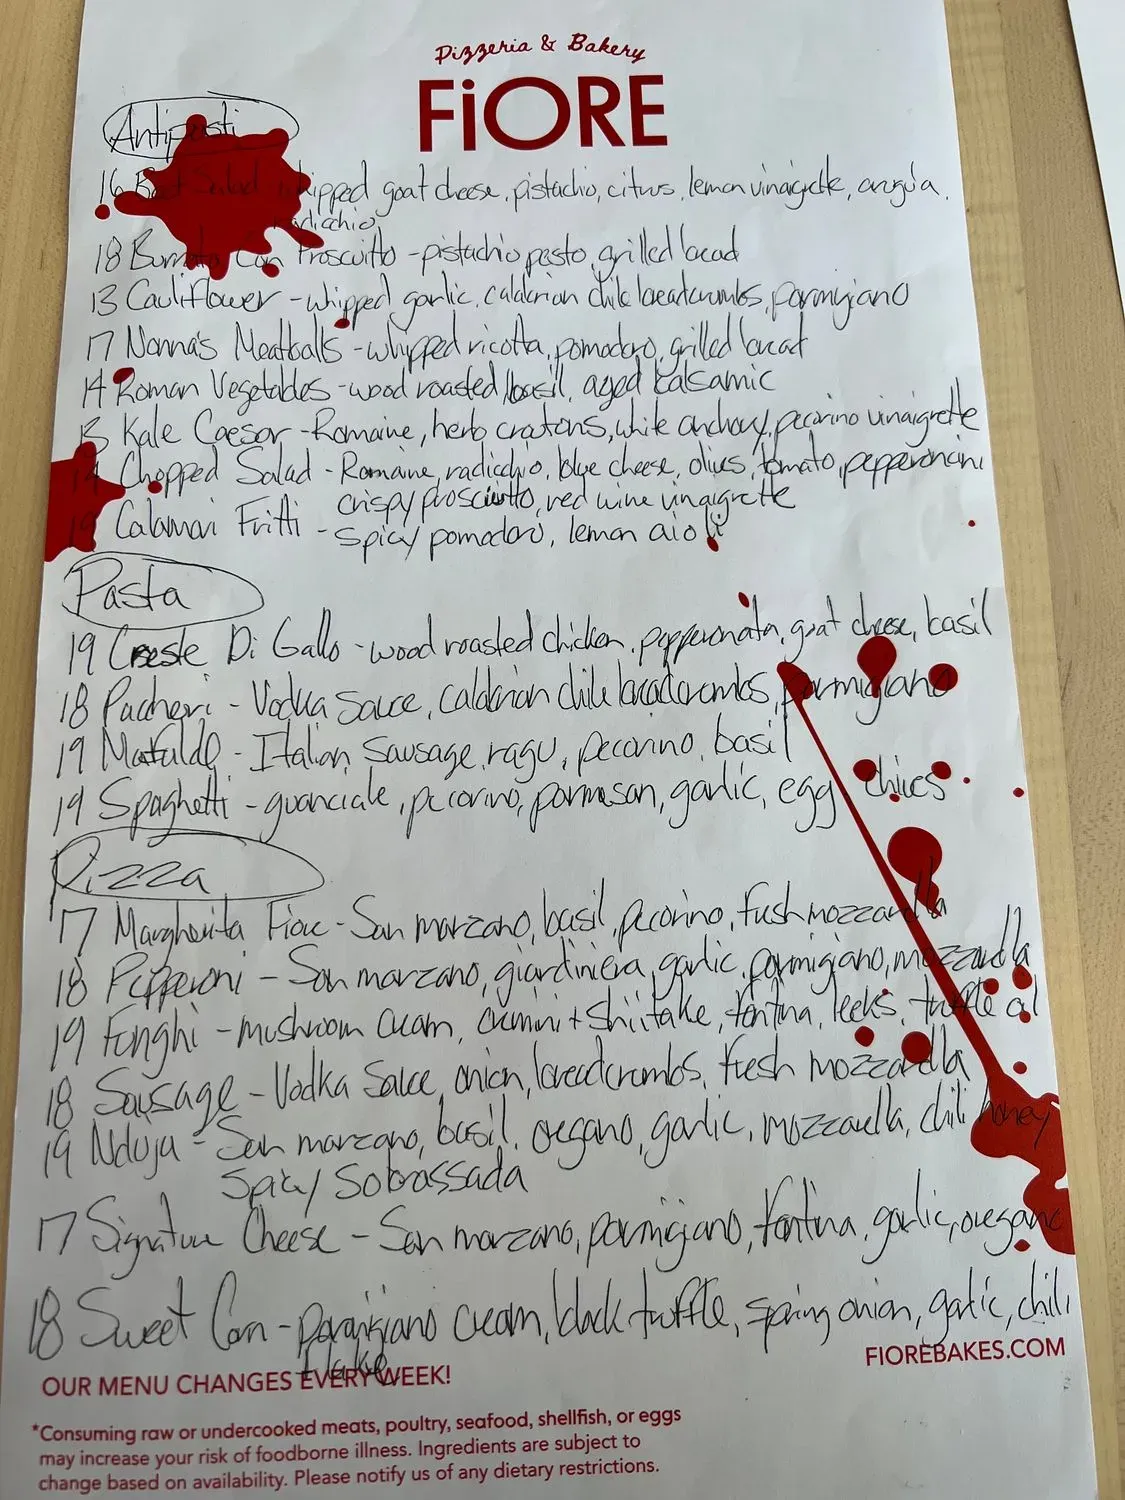 Pizzeria & Bakery
FiORE
Antipasti
16 Beet Salad whipped goat cheese, pistachio, citrus, lemon vinaigrette, arugula,
radicchio
18 Burrata Con Proscuitto - pistachio pesto, grilled bread
13 Cauliflower - whipped garlic, calabrian chile breadcrumbs, parmigiano
17 Nonna's Meatballs - whipped ricotta, pomodoro, grilled bread
14 Roman Vegetables - wood roasted, basil, aged balsamic
13 Kale Caesar - Romaine, herb croutons, white anchovy, pecorino vinaigrette
14 Chopped Salad - Romaine, radicchio, blue cheese, olives, tomato, pepperoncini
crispy prosciutto, red wine vinaigrette
19 Calamari Fritti - spicy pomodoro, lemon aioli
Pasta
19 Creste Di Gallo - wood roasted chicken, pepperonata, goat cheese, basil
18 Paccheri - Vodka Sauce, calabrian chile breadcrumbs, parmigiano
19 Mafalde - Italian Sausage ragu, pecorino, basil
19 Spaghetti - guanciale, pecorino, parmesan, garlic, egg chives
Pizza
17 Margherita Fiore - San marzano, basil, pecorino, fresh mozzarella
18 Pepperoni - San marzano, giardiniera, garlic, parmigiano, mozzarella
19 Funghi - mushroom cream, cremini + shiitake, fontina, leeks, truffle oil
18 Sausage - Vodka Sauce, onion, breadcrumbs, fresh mozzarella
19 Nduja - San marzano, basil, oregano, garlic, mozzarella, chili honey
Spicy Sobrassada
17 Signature Cheese - San marzano, parmigiano, fontina, garlic, oregano
18 Sweet Corn - Parmigiano cream, black truffle, spring onion, garlic, chili
flake
FIOREBAKES.COM
OUR MENU CHANGES EVERY WEEK!
*Consuming raw or undercooked meats, poultry, seafood, shellfish, or eggs
may increase your risk of foodborne illness. Ingredients are subject to
change based on availability. Please notify us of any dietary restrictions.